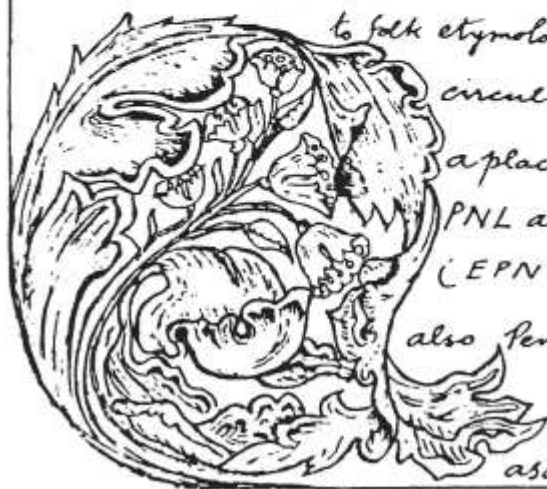 to folk etymolo
circul
a plac
PNL a
(EPN
also Per
asc